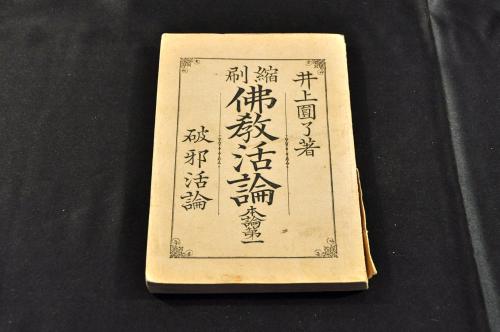 井上圓了著
縮刷
佛教活論
本論第一
破邪活論